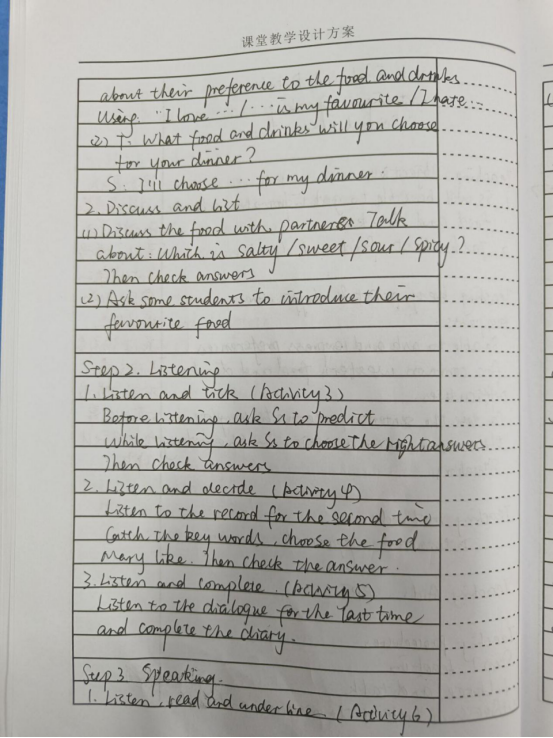 课堂教学设计方案
about their preference to the food and drinks
using "I love ... / ... is my favourite / I hate ...
(2) T: What food and drinks will you choose
for your dinner?
S: I'll choose ... for my dinner.
2. Discuss and list
(1) Discuss the food with partners Talk
about: Which is salty / sweet / sour / spicy?
Then check answers
(2) Ask some students to introduce their
favourite food
Step 2. Listening
1. Listen and tick (Activity 3)
Before listening, ask Ss to predict
While listening, ask Ss to choose the right answers
Then check answers
2. Listen and decide (Activity 4)
Listen to the record for the second time
Catch the key words, choose the food
Mary like. Then check the answer.
3. Listen and complete. (Activity 5)
Listen to the dialogue for the last time
and complete the diary.
Step 3 Speaking.
1. Listen, read and underline (Activity 6)